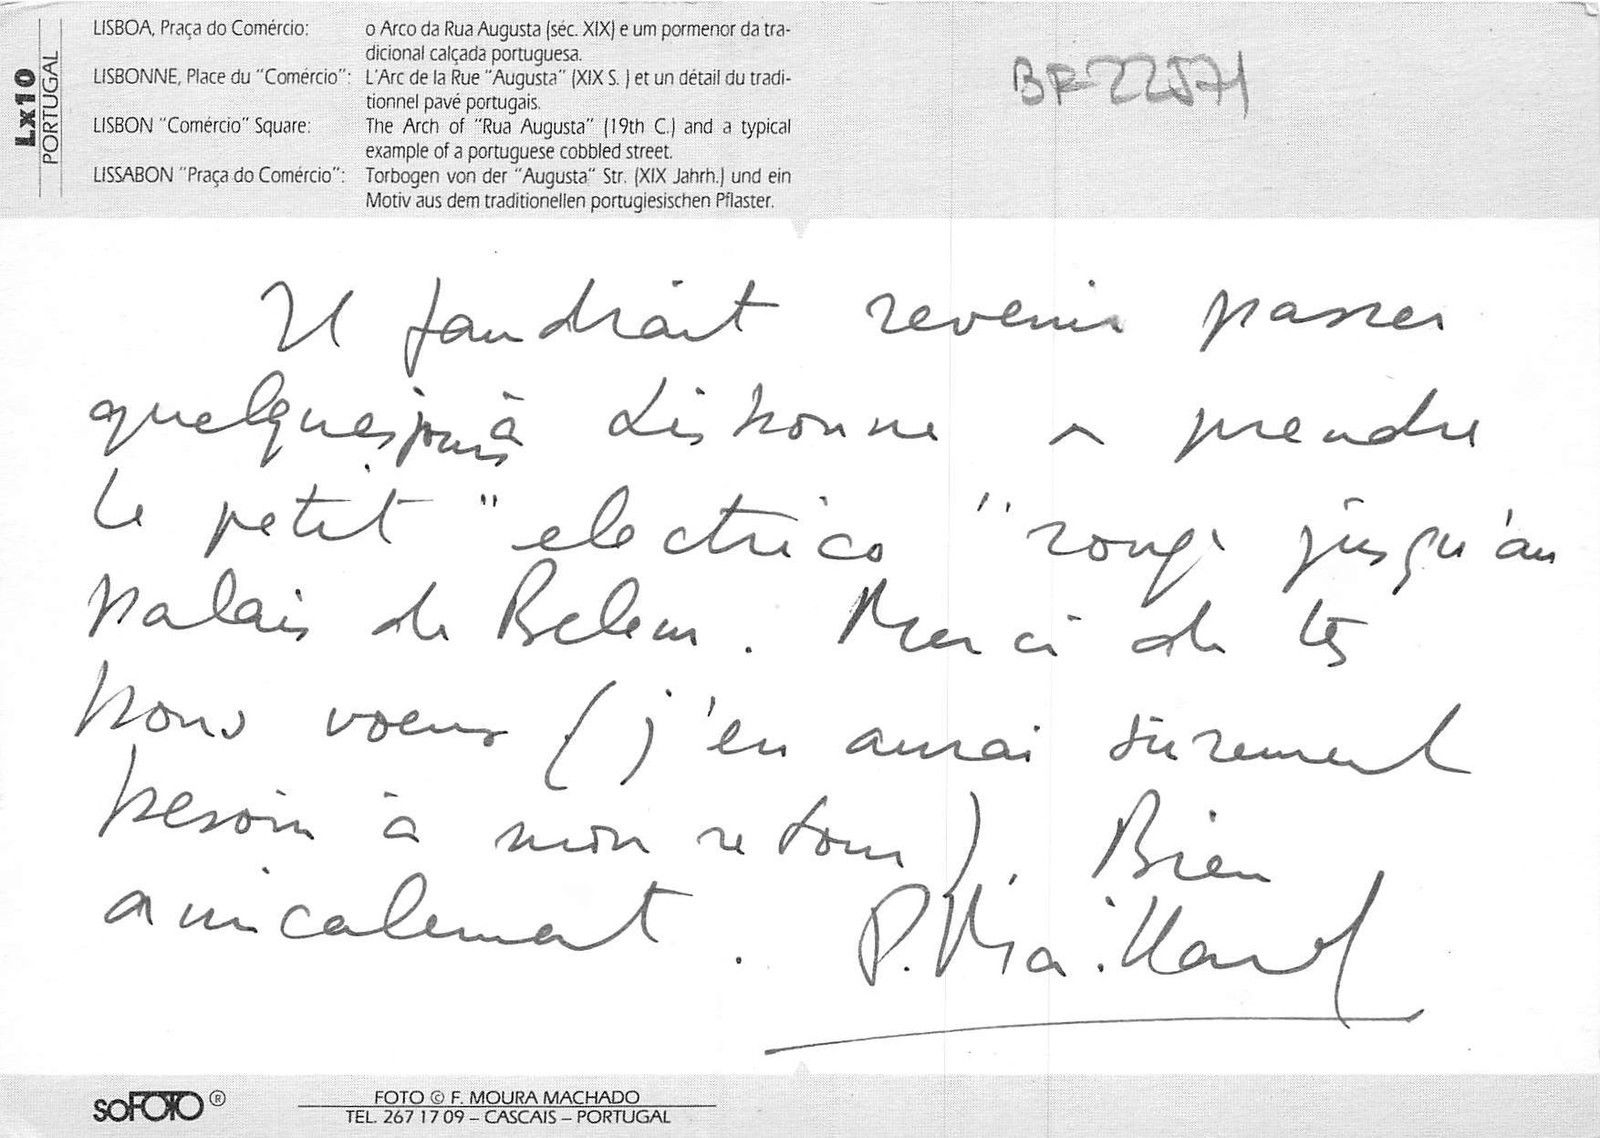 Lx10
PORTUGAL
LISBOA, Praça do Comércio: o Arco da Rua Augusta (séc. XIX) e um pormenor da tra-
dicional calçada portuguesa.
LISBONNE, Place du "Comércio": L'Arc de la Rue "Augusta" (XIX S.) et un détail du tradi-
tionnel pavé portugais.
LISBON "Comércio" Square: The Arch of "Rua Augusta" (19th C.) and a typical
example of a portuguese cobbled street.
LISSABON "Praça do Comércio": Torbogen von der "Augusta" Str. (XIX Jahrh.) und ein
Motiv aus dem traditionellen portugiesischen Pflaster.
BF-22571
Il faudrait revenir passer
quelques jours à Lisbonne prendre
le petit "electrico" rouge jusqu'au
palais de Belem. Merci de tes
bons voeux (j'en aurai sûrement
besoin à mon retour). Bien
amicalement. P. Maillard
soFOTO ®
FOTO © F. MOURA MACHADO
TEL. 267 17 09 – CASCAIS – PORTUGAL